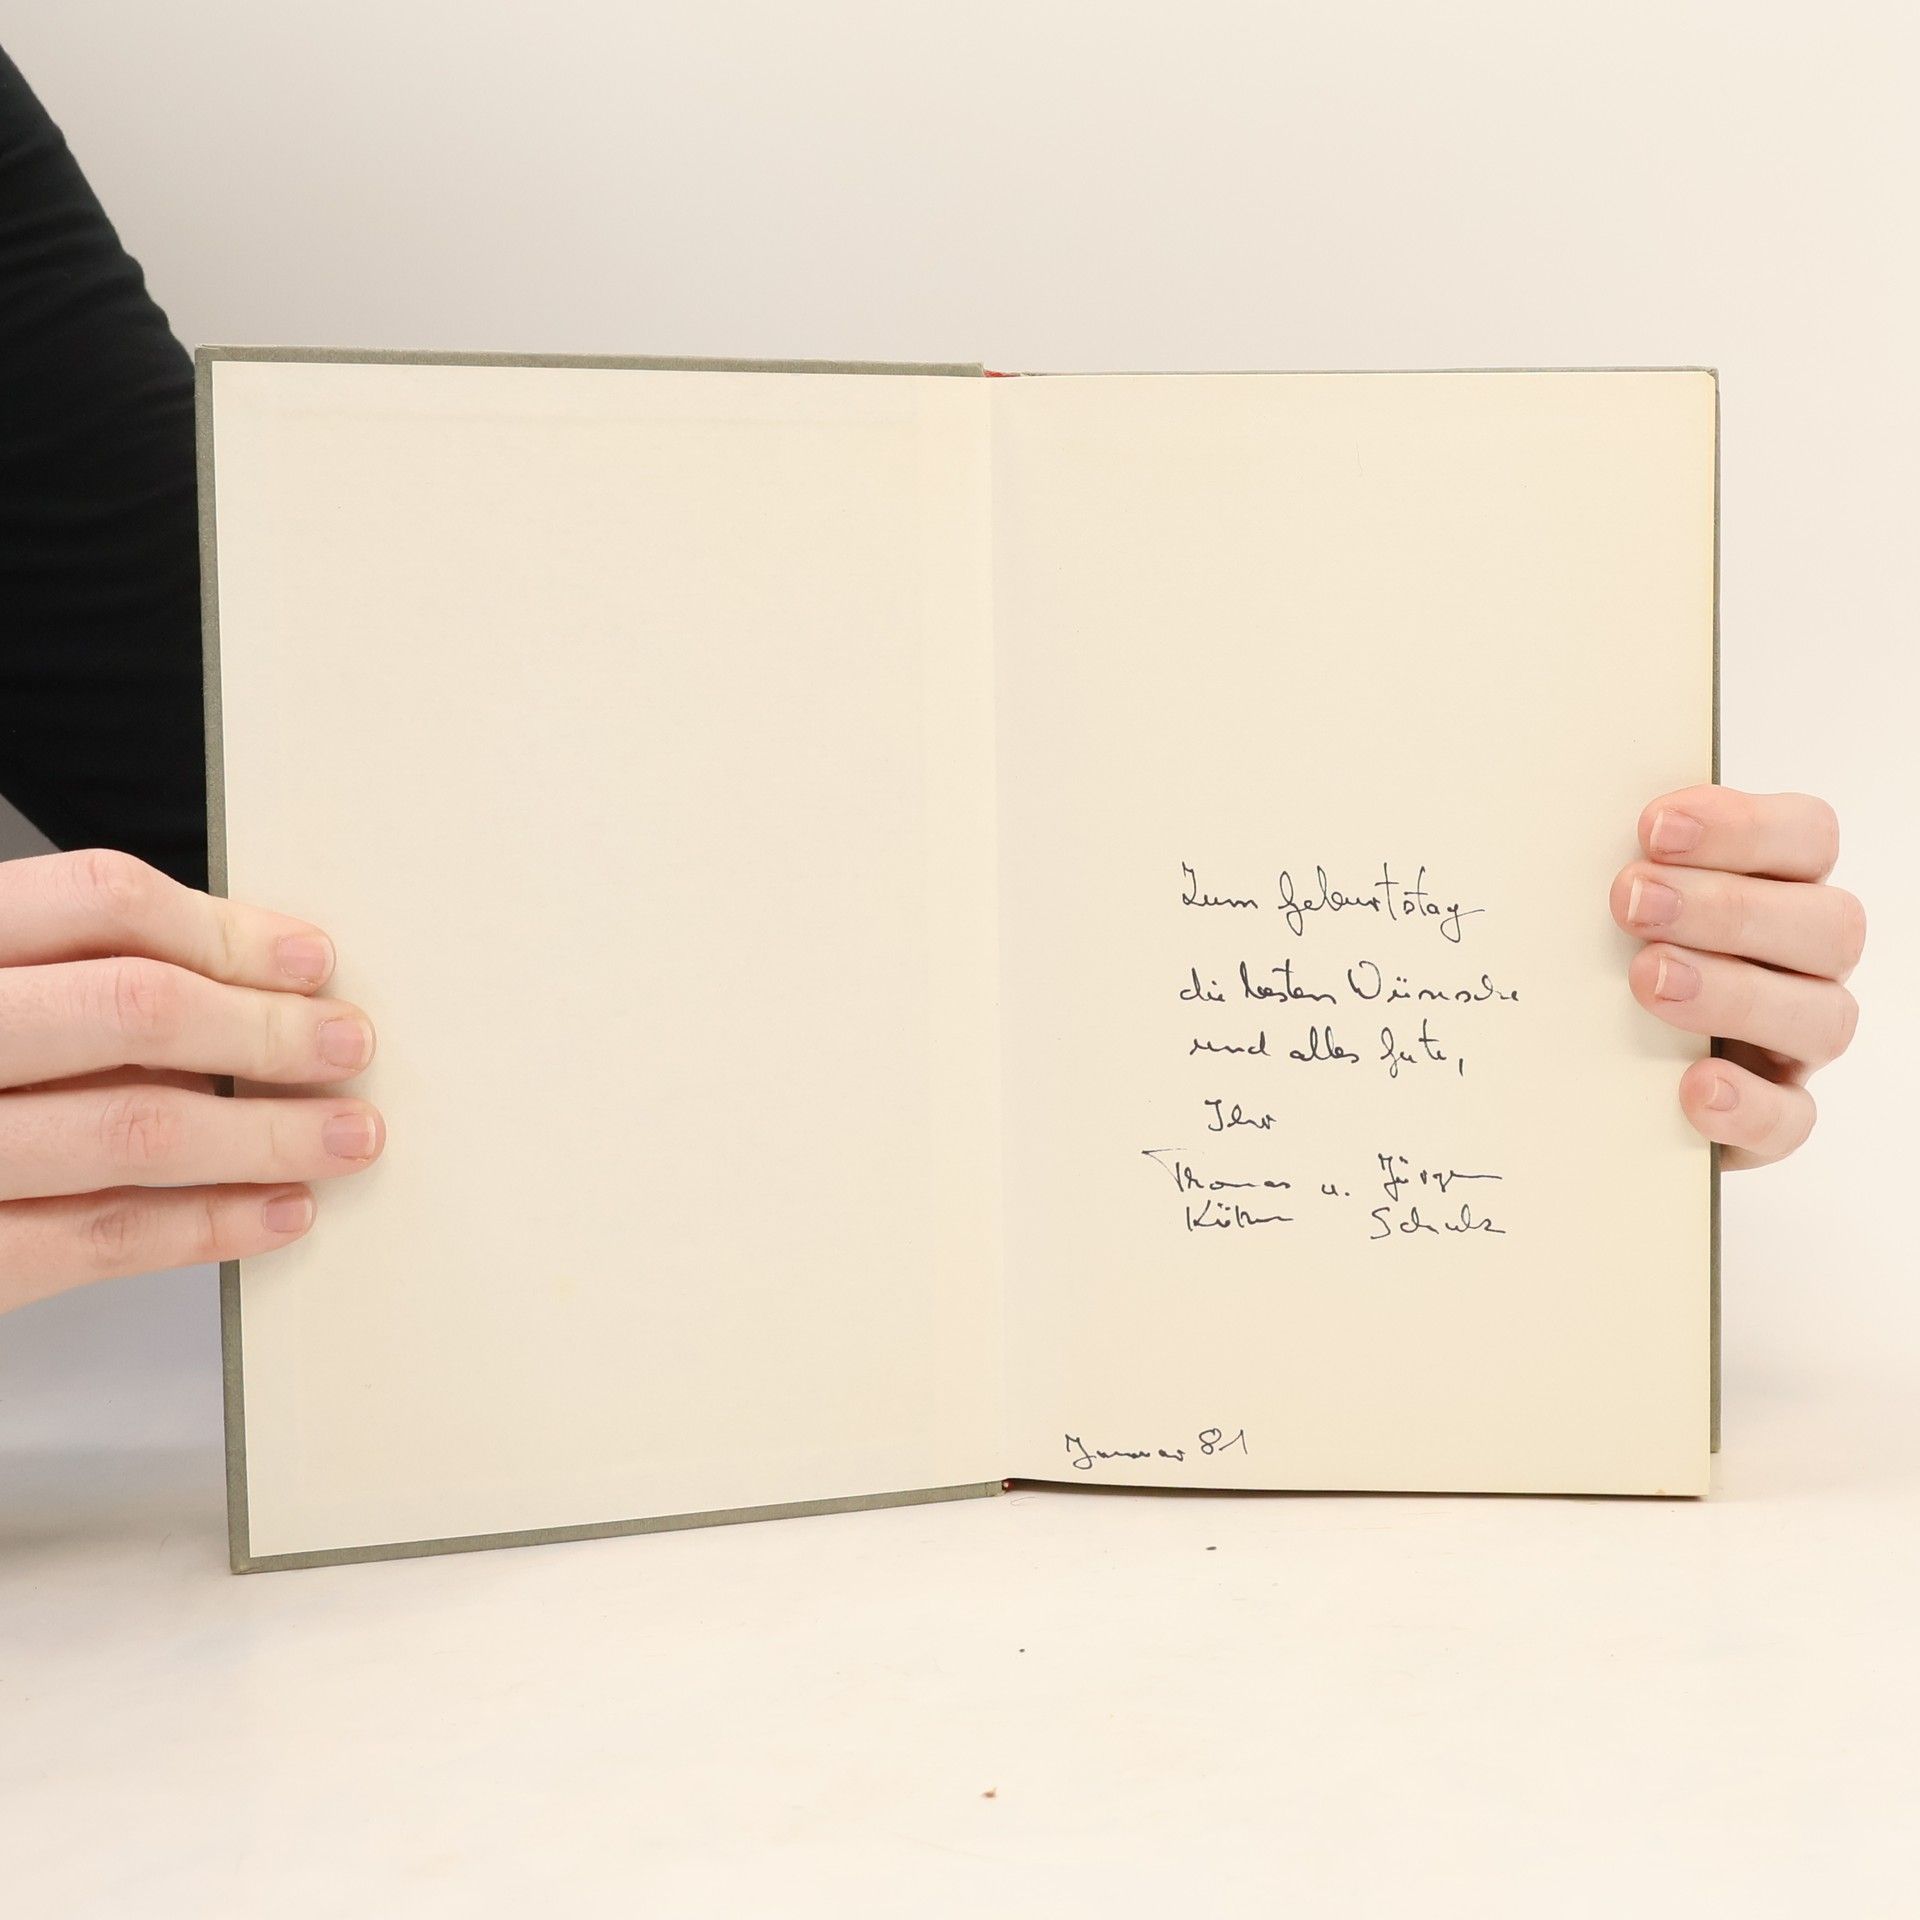 Zum Geburtstag
die besten Wünsche
und alles Gute,
Ihr
Thomas u. Jürgen
Schulz
Januar 81